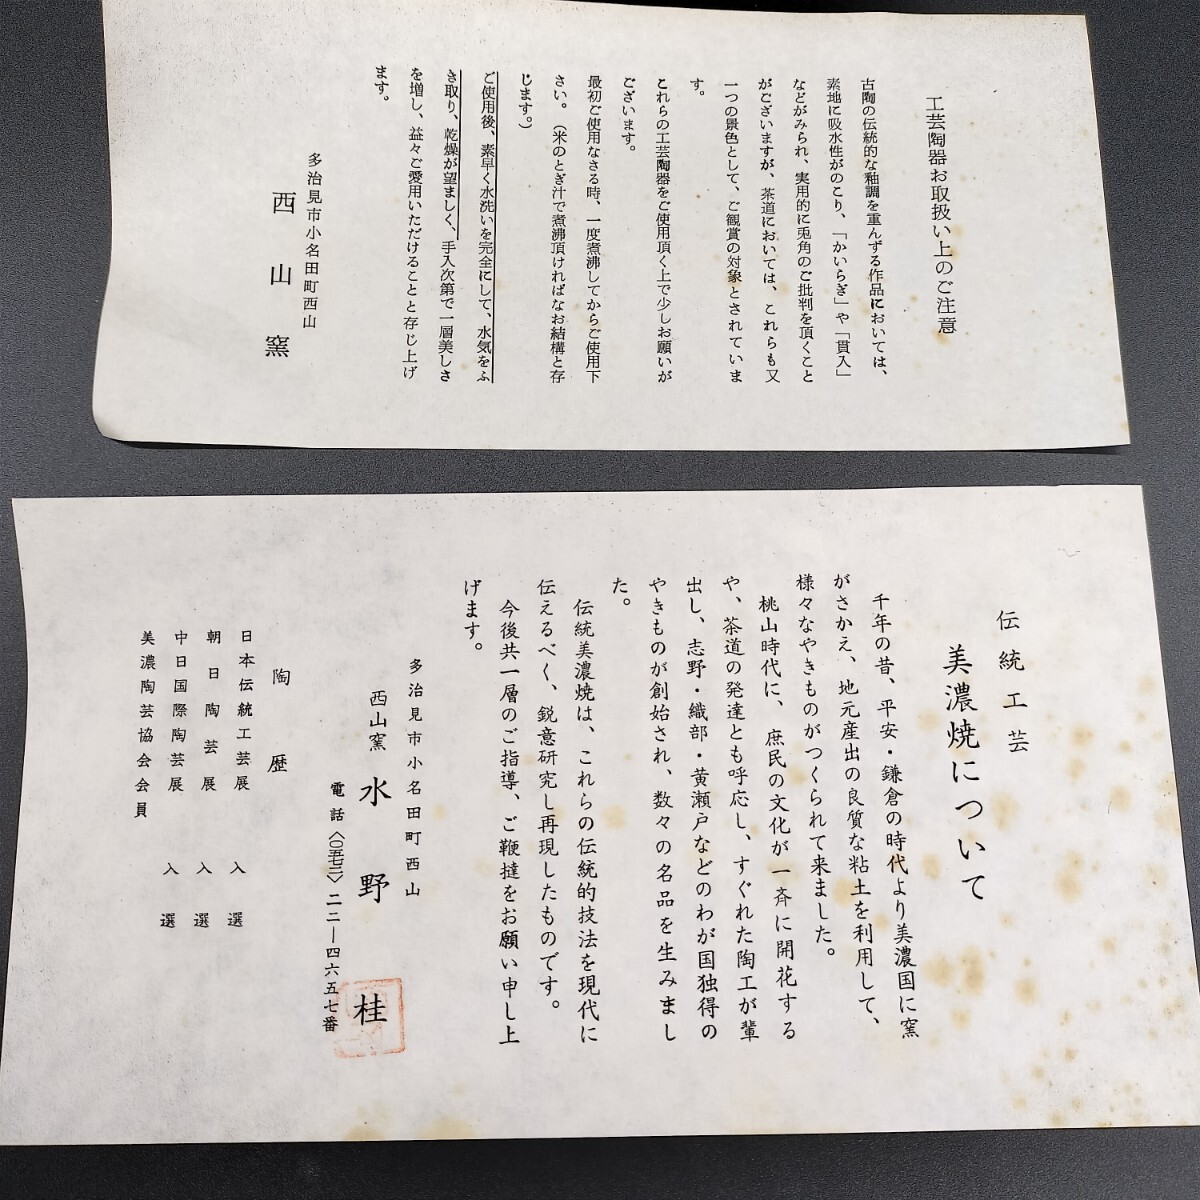 工芸陶器お取扱い上のご注意
古陶の伝統的な釉調を重んずる作品においては、
素地に吸水性がのこり、「かいらぎ」や「貫入」
などがみられ、実用的に兎角のご批判を頂くこと
がございますが、茶道においては、これらも又
一つの景色として、ご観賞の対象とされていま
す。
これらの工芸陶器をご使用頂く上で少しお願いが
ございます。
最初ご使用なさる時、一度煮沸してからご使用下
さい。（米のとぎ汁で煮沸頂ければなお結構と存
じます。）
ご使用後、素早く水洗いを完全にして、水気をふ
き取り、乾燥が望ましく、手入次第で一層美しさ
を増し、益々ご愛用いただけることと存じ上げ
ます。
多治見市小名田町西山
西山窯
伝統工芸
美濃焼について
千年の昔、平安・鎌倉の時代より美濃国に窯
がさかえ、地元産出の良質な粘土を利用して、
様々なやきものがつくられて来ました。
桃山時代に、庶民の文化が一斉に開花する
や、茶道の発達とも呼応し、すぐれた陶工が輩
出し、志野・織部・黄瀬戸などのわが国独得の
やきものが創始され、数々の名品を生みまし
た。
伝統美濃焼は、これらの伝統的技法を現代に
伝えるべく、鋭意研究し再現したものです。
今後共一層のご指導、ご鞭撻をお願い申し上
げます。
多治見市小名田町西山
西山窯 水野桂
電話〈〇五七三〉二二―四六五七番
陶歴
日本伝統工芸展 入選
朝日陶芸展 入選
中日国際陶芸展 入選
美濃陶芸協会会員